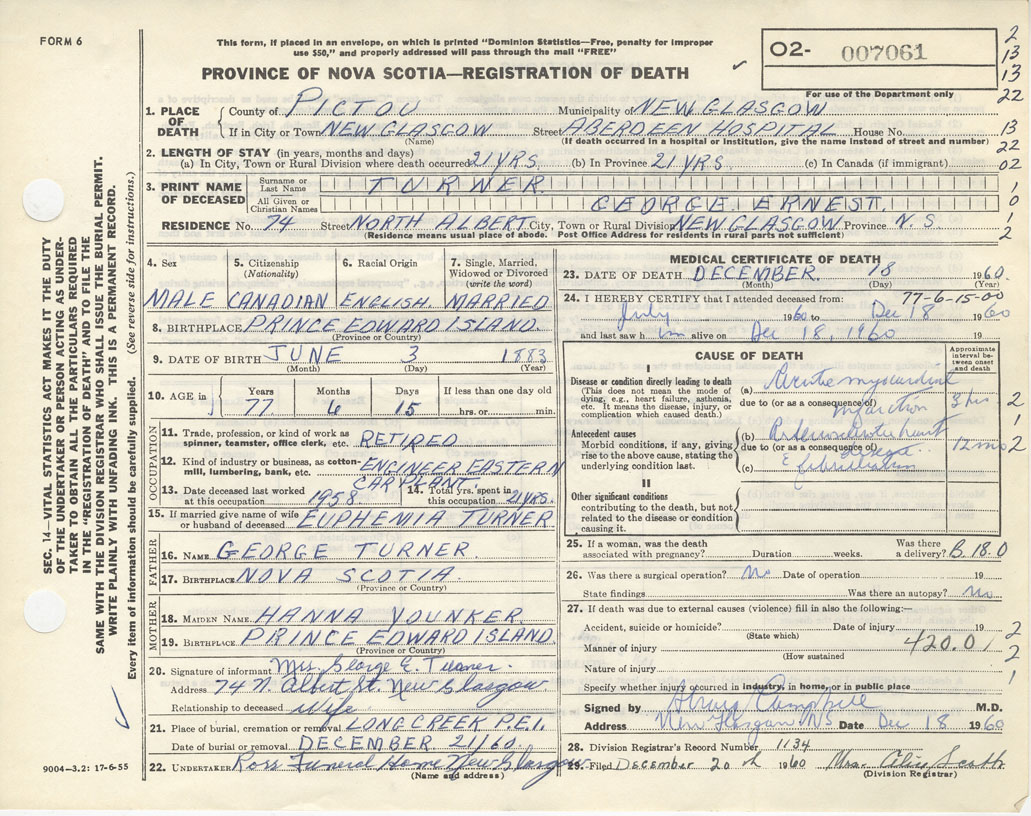 FORM 6
This form, if placed in an envelope, on which is printed "Dominion Statistics—Free, penalty for improper
use $50," and properly addressed will pass through the mail "FREE"
PROVINCE OF NOVA SCOTIA—REGISTRATION OF DEATH
O2- 007061
For use of the Department only
2
13
13
22
13
22
02
1
0
1
2
1. PLACE OF DEATH
County of PICTOU Municipality of NEW GLASGOW
If in City or Town NEW GLASGOW Street ABERDEEN HOSPITAL House No.
(Name) (If death occurred in a hospital or Institution, give the name instead of street and number)
2. LENGTH OF STAY (in years, months and days)
(a) In City, Town or Rural Division where death occurred 21 YRS. (b) In Province 21 YRS. (c) In Canada (if immigrant)
3. PRINT NAME OF DECEASED
Surname or Last Name TURNER
All Given or Christian Names GEORGE ERNEST
RESIDENCE No. 74 Street NORTH ALBERT City, Town or Rural Division NEW GLASGOW Province N.S.
(Residence means usual place of abode. Post Office Address for residents in rural parts not sufficient)
4. Sex 5. Citizenship (Nationality) 6. Racial Origin 7. Single, Married, Widowed or Divorced (write the word)
MALE CANADIAN ENGLISH. MARRIED
8. BIRTHPLACE PRINCE EDWARD ISLAND.
(Province or Country)
9. DATE OF BIRTH JUNE 3 1883
(Month) (Day) (Year)
10. AGE in Years Months Days If less than one day old
77 6 15 hrs. or min.
OCCUPATION
11. Trade, profession, or kind of work as spinner, teamster, office clerk, etc. RETIRED
12. Kind of industry or business, as cotton-mill, lumbering, bank, etc. ENGINEER EASTERN
CAR PLANT.
13. Date deceased last worked at this occupation 1958 14. Total yrs. spent in this occupation 21 YRS.
15. If married give name of wife or husband of deceased EUPHEMIA TURNER
FATHER
16. NAME GEORGE TURNER.
17. BIRTHPLACE NOVA SCOTIA.
(Province or Country)
MOTHER
18. MAIDEN NAME HANNA YOUNKER.
19. BIRTHPLACE PRINCE EDWARD ISLAND
(Province or Country)
20. Signature of informant Mrs. George E. Turner.
Address 74 N. Albert St. New Glasgow
Relationship to deceased Wife
21. Place of burial, cremation or removal LONG CREEK P.E.I.
Date of burial or removal DECEMBER. 21/60.
22. UNDERTAKER Ross Funeral Home New Glasgow
(Name and address)
MEDICAL CERTIFICATE OF DEATH
23. DATE OF DEATH DECEMBER 18 1960.
(Month) (Day) (Year)
24. I HEREBY CERTIFY that I attended deceased from: 77-6-15-00
July 1960 to Dec 18 1960
and last saw h im alive on Dec 18, 1960
CAUSE OF DEATH
Approximate interval between onset and death
I
Disease or condition directly leading to death
(This does not mean the mode of dying, e.g., heart failure, asthenia, etc. It means the disease, injury, or complication which caused death.)
(a) Acute myocardial
due to (or as a consequence of) infarction 3 hrs 2
1
Antecedent causes
Morbid conditions, if any, giving rise to the above cause, stating the underlying condition last.
(b) heart
due to (or as a consequence of) 12 mo 2
(c) fibrillation
II
Other significant conditions
contributing to the death, but not related to the disease or condition causing it.
25. If a woman, was the death associated with pregnancy? Duration weeks. Was there a delivery? B. 18.0
26. Was there a surgical operation? No Date of operation 19
State findings Was there an autopsy? No
27. If death was due to external causes (violence) fill in also the following:—
Accident, suicide or homicide? Date of injury 19 2
(State which)
Manner of injury 420.01 2
(How sustained)
Nature of injury
Specify whether injury occurred in industry, in home, or in public place 1
Signed by Campbell M.D.
Address New Glasgow NS Date Dec 18 1960
28. Division Registrar's Record Number 1134
29. Filed DECEMBER 20 th 1960 Mrs.
(Division Registrar)
SEC. 14—VITAL STATISTICS ACT MAKES IT THE DUTY
OF THE UNDERTAKER OR PERSON ACTING AS UNDER-
TAKER TO OBTAIN ALL THE PARTICULARS REQUIRED
IN THE "REGISTRATION OF DEATH" AND TO FILE THE
SAME WITH THE DIVISION REGISTRAR WHO SHALL ISSUE THE BURIAL PERMIT.
WRITE PLAINLY WITH UNFADING INK. THIS IS A PERMANENT RECORD.
Every item of information should be carefully supplied. (See reverse side for instructions.)
9004—3.2: 17-6-55